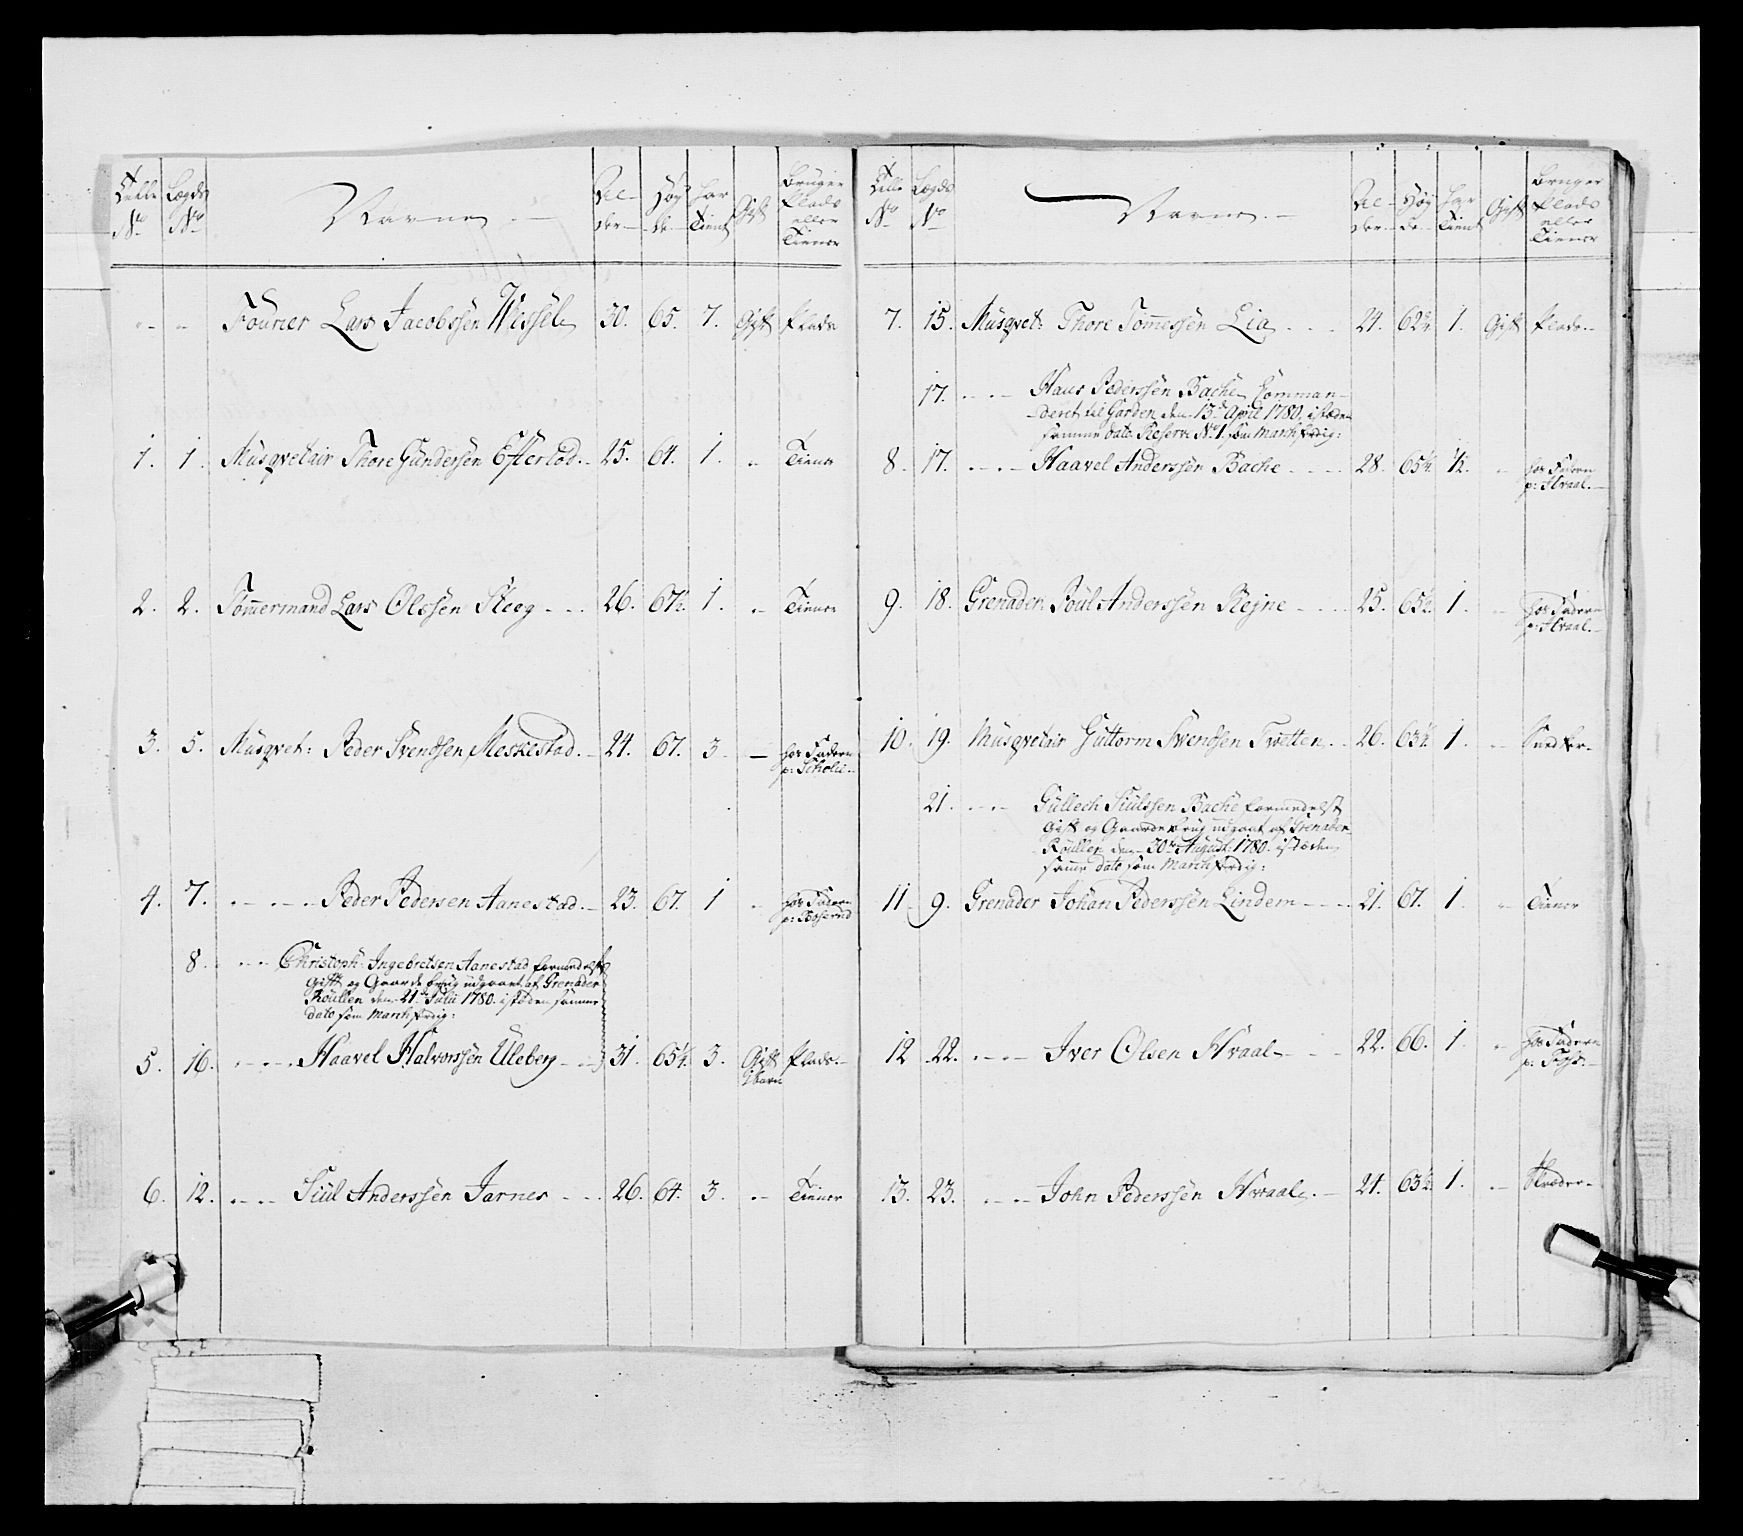 Telle No | Lægds No | Navne. | Al-der | Høy-de | har Tient | Gift | Bruger Plads eller Tiener
" | " | Fourier Lars Jacobssen Wessel | 30. | 65. | 7. | Gift | Plads
1. | 1. | Musqvetair Thore Gundersen Efterlod | 25. | 64. | 1. | " | Tiener
2. | 2. | Tømmermand Lars Olssen Skog | 26. | 67½. | 1. | " | Tiener
3. | 5. | Musqvet: Peder Svendsen Meskestad | 24. | 67. | 3. | " | hos Faderen
p:
4. | 7. | Peder Pedersen Aanestad | 23. | 67. | 1 | " | hos Faderen
p:
8. | Christoph: Ingebretsen Aanestad formedelst
Gift og Gaarde brug udgaaet af Grenader
Roullen den 21de Julii 1780. isteden samme
dato som Marchfærdig:
5. | 16. | Haavel Halvorssen Uleberg | 31. | 65¼. | 3. | Gift | Plads
1 barn
6. | 12. | Siul Anderssen Jarnes | 26. | 64. | 3. | " | Tiener
Telle No | Lægds No | Navne. | Al-der | Høy-de | har Tient | Gift | Bruger Plads eller Tiener
7. | 15. | Musqvet: Thore Tommessen Lia | 24. | 62½ | 1. | Gift | Plads
17. | Hans Pederssen Bache Comman-
deret til Garden den 13de April 1780. isteden
samme dato Reserve No 1. som Marchfærdig:
8. | 17. | Haavel Anderssen Bache | 28. | 65¼. | ½. | " | hos Faderen
p: Hvaal.
9. | 18. | Grenader Poul Anderssen Rejne | 25. | 65½. | 1. | " | hos Faderen
p: Hvaal.
10. | 19. | Musqvetair Guttorm Svendsen Tvetten | 26. | 63½. | 1. | " | Snedker
21. | Gullech Siulssen Bache formedelst
Gift og Gaarde brug udgaaet af Grenader
Roullen den 30te August: 1780. isteden
samme dato som Marchfærdig:
11. | 9. | Grenader Johan Pederssen Lindem | 21. | 67. | 1. | " | Tiener
12 | 22. | Iver Olsen Hvaal | 22. | 66. | 1. | " | hos Faderen
p:
13. | 23. | John Pederssen Hvaal | 24. | 63½. | 1. | " | Skræder